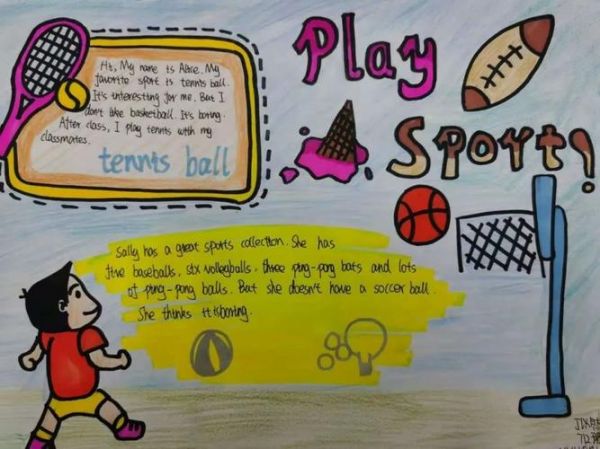 Play
Sport!
Hi, My name is Alice. My
favorite sport is tennis ball.
It's interesting for me. But I
don't like basketball. It's boring.
After class, I play tennis with my
classmates.
tennis ball
Sally has a great sports collection. She has
five baseballs, six volleyballs, three ping-pong bats and lots
of ping-pong balls. But she doesn't have a soccer ball.
She thinks it isboring.